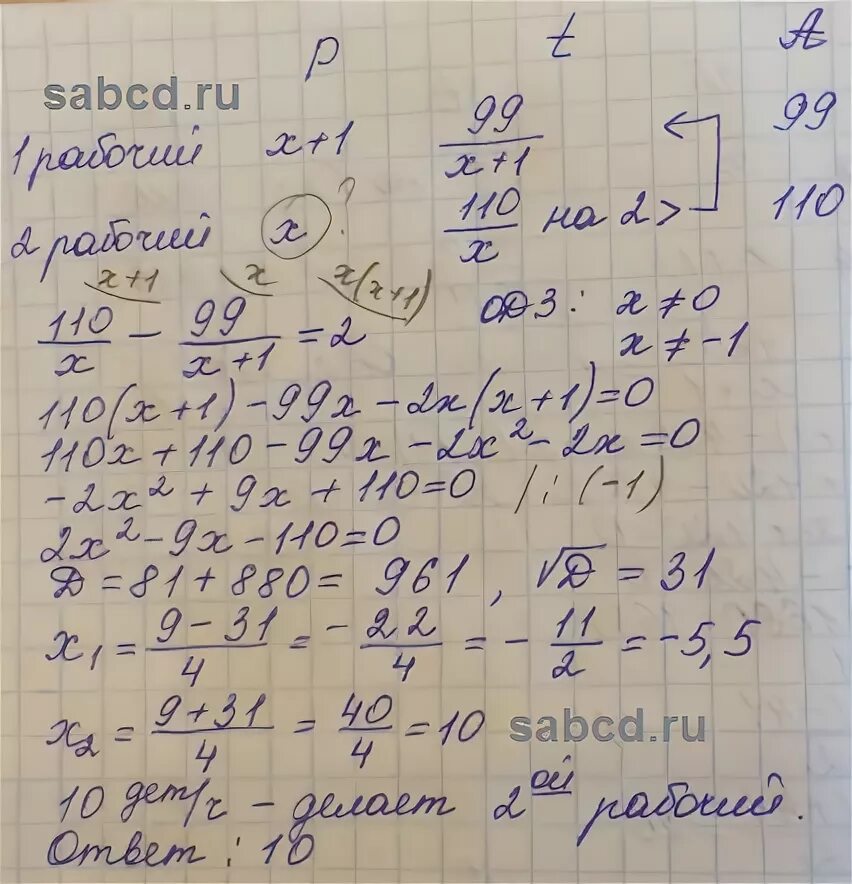 p t A
sabcd.ru
1 рабочий x+1 99/(x+1) 99
2 рабочий x ? 110/x на 2 > 110
x+1 x x(x+1)
110/x − 99/(x+1) = 2 ОДЗ: x ≠ 0
x ≠ −1
110(x+1) − 99x − 2x(x+1) = 0
110x + 110 − 99x − 2x² − 2x = 0
−2x² + 9x + 110 = 0 /: (−1)
2x² − 9x − 110 = 0
D = 81 + 880 = 961, √D = 31
x₁ = (9 − 31)/4 = −22/4 = −11/2 = −5,5
x₂ = (9 + 31)/4 = 40/4 = 10
sabcd.ru
10 дет/ч − делает 2ой рабочий.
Ответ: 10